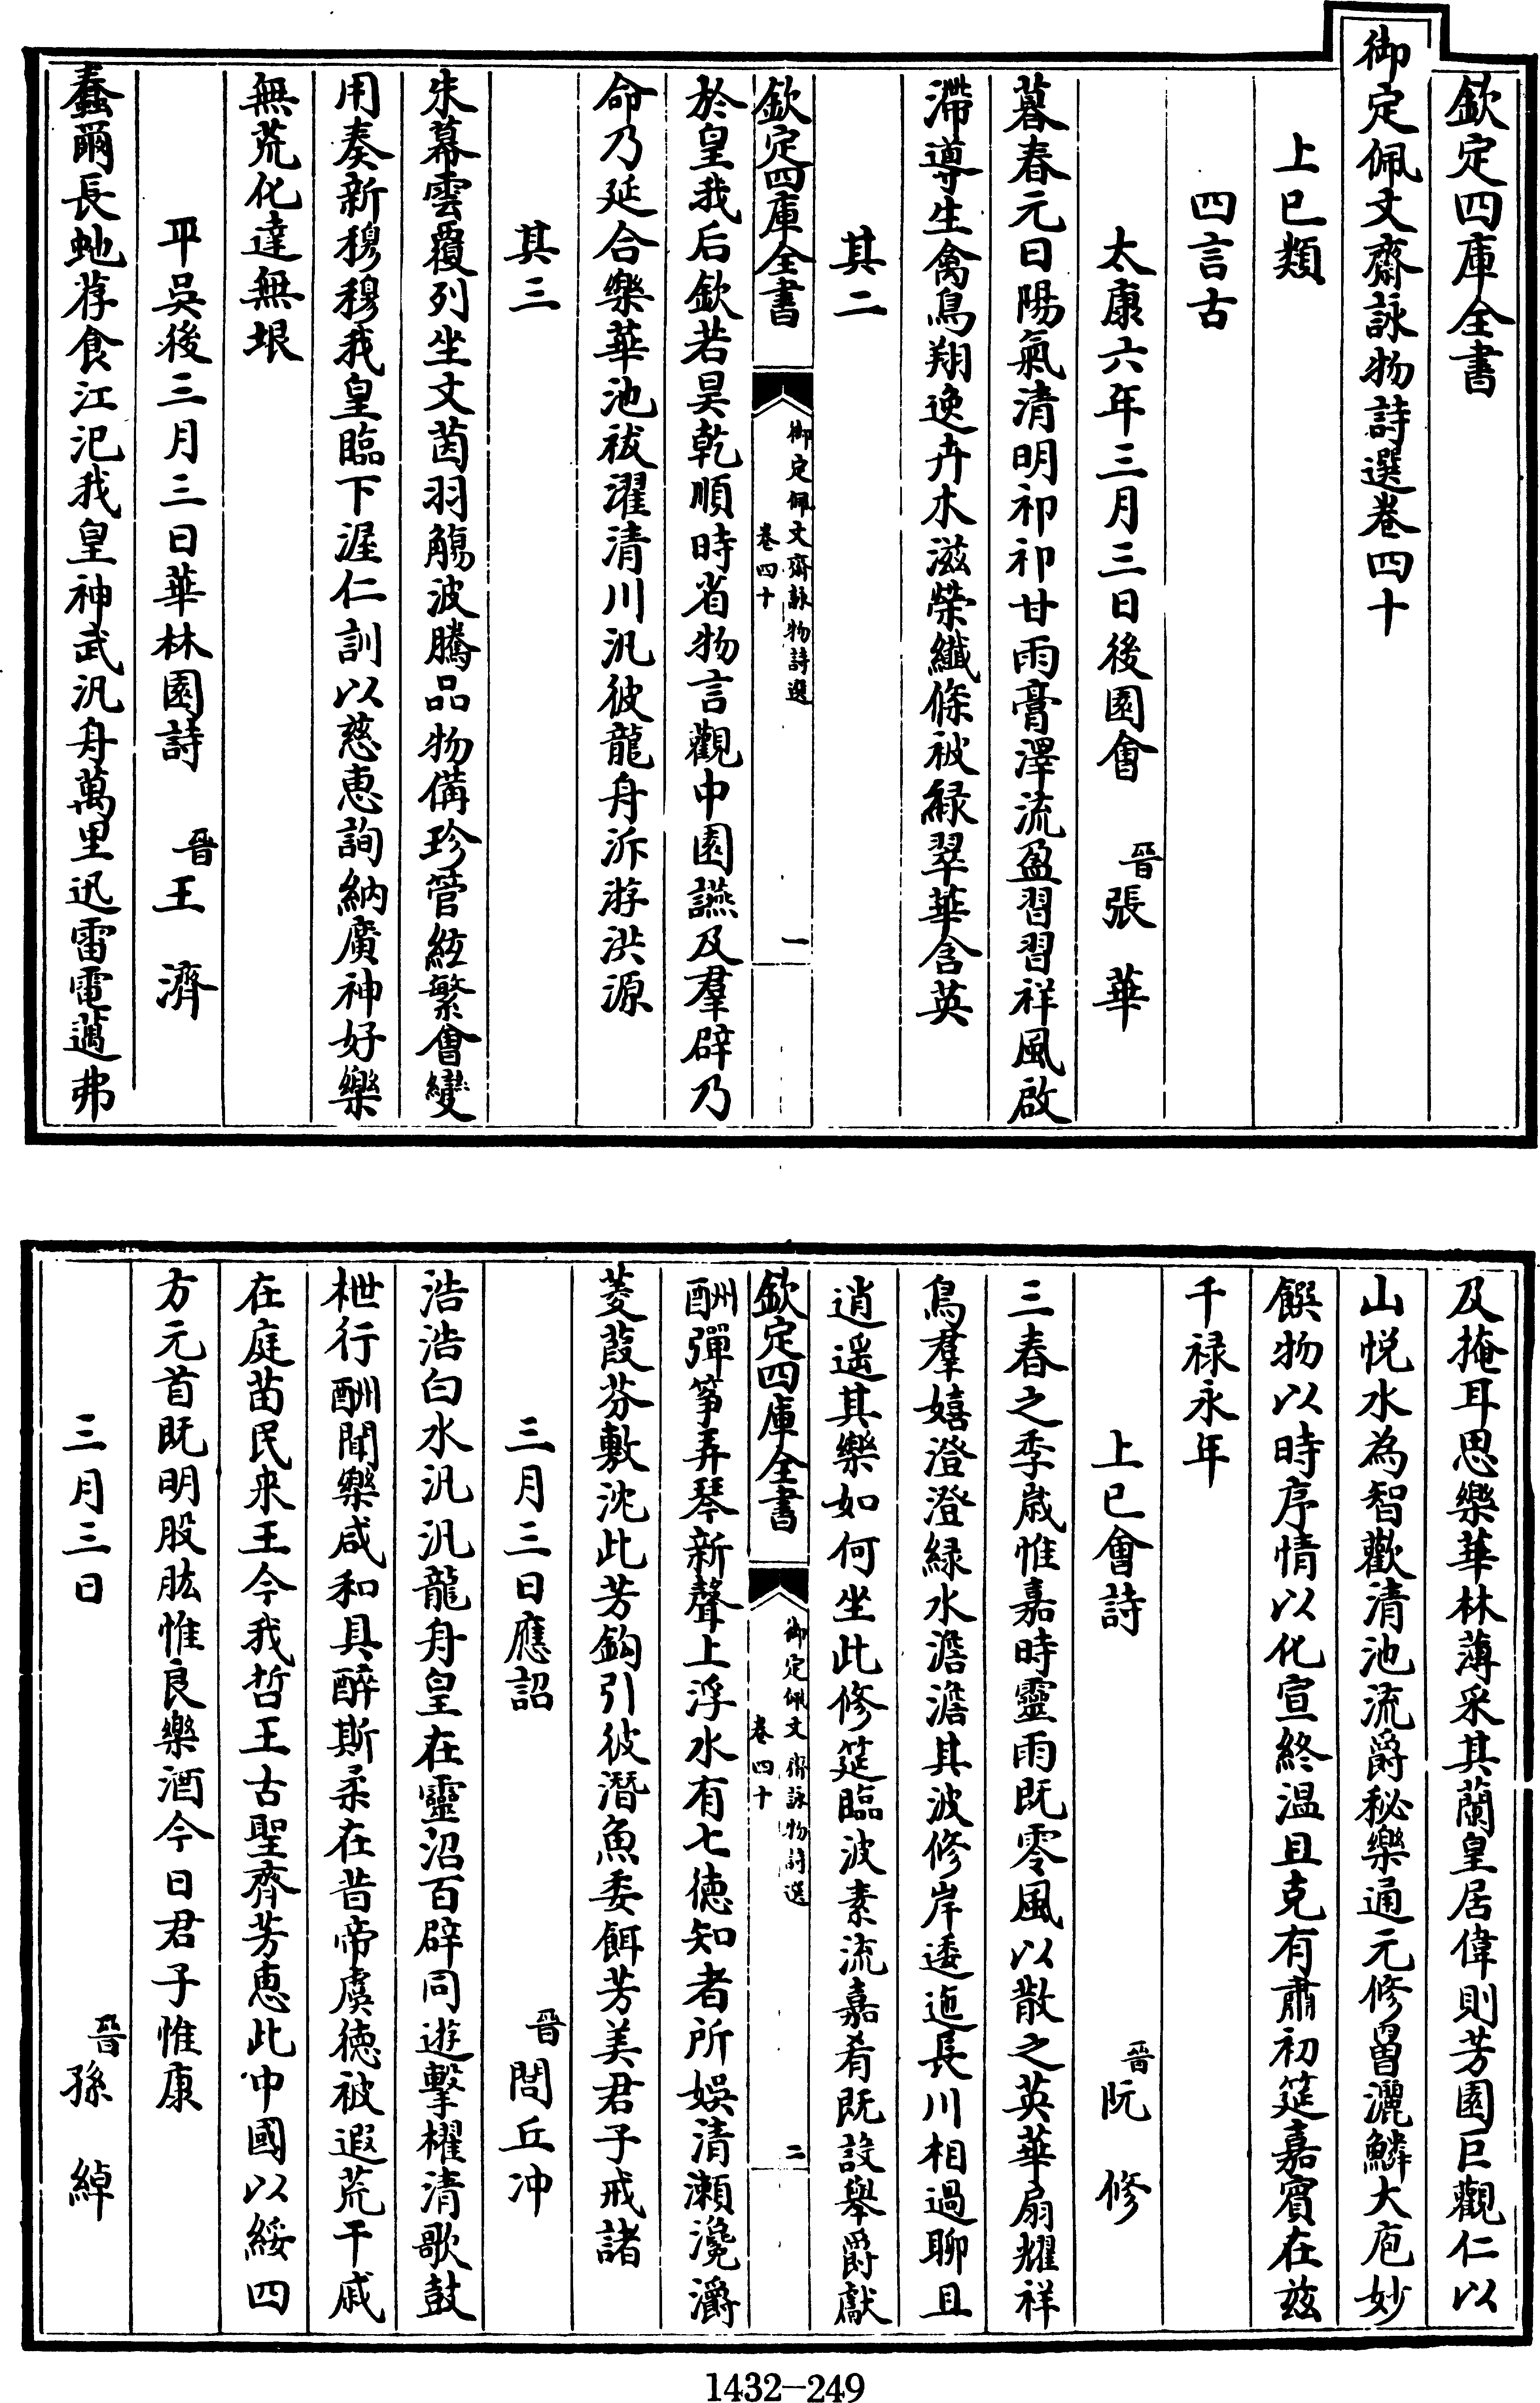 欽定四庫全書
御定佩文齋詠物詩選卷四十
上巳類
四言古
太康六年三月三日後園會 晉張華
暮春元日陽氣清明祁祁甘雨膏澤流盈習習祥風啟
滯導生禽鳥翔逸卉木滋榮纖條被綠翠華含英
其二
欽定四庫全書
御定佩文齋詠物詩選
卷四十
一
於皇我后欽若昊乾順時省物言觀中園讌及羣辟乃
命乃延合樂華池祓濯清川汎彼龍舟泝游洪源
其三
朱幕雲覆列坐文茵羽觴波騰品物備珍管絃繁會變
用奏新穆穆我皇臨下渥仁訓以慈惠詢納廣神好樂
無荒化達無垠
平吳後三月三日華林園詩 晉王濟
蠢爾長虵荐食江汜我皇神武汎舟萬里迅雷電邁弗
及掩耳思樂華林薄采其蘭皇居偉則芳園巨觀仁以
山悅水為智歡清池流爵秘樂通元修罾灑鱗大庖妙
饌物以時序情以化宣終温且克有肅初筵嘉賓在兹
千禄永年
上巳會詩 晉阮修
三春之季歲惟嘉時靈雨既零風以散之英華扇耀祥
鳥羣嬉澄澄緑水澹澹其波修岸逶迤長川相過聊且
逍遥其樂如何坐此修筵臨波素流嘉肴既設舉爵獻
欽定四庫全書
御定佩文齋詠物詩選
卷四十
二
酬彈箏弄琴新聲上浮水有七徳知者所娛清瀨瀺灂
菱葭芬敷沈此芳鈎引彼潛魚委餌芳美君子戒諸
三月三日應詔 晉閭丘冲
浩浩白水汎汎龍舟皇在靈沼百辟同遊擊櫂清歌鼓
枻行酬聞樂咸和具醉斯柔在昔帝虞徳被遐荒干戚
在庭苗民来王今我哲王古聖齊芳恵此中國以綏四
方元首既明股肱惟良樂酒今日君子惟康
三月三日 晉孫綽
1432-249